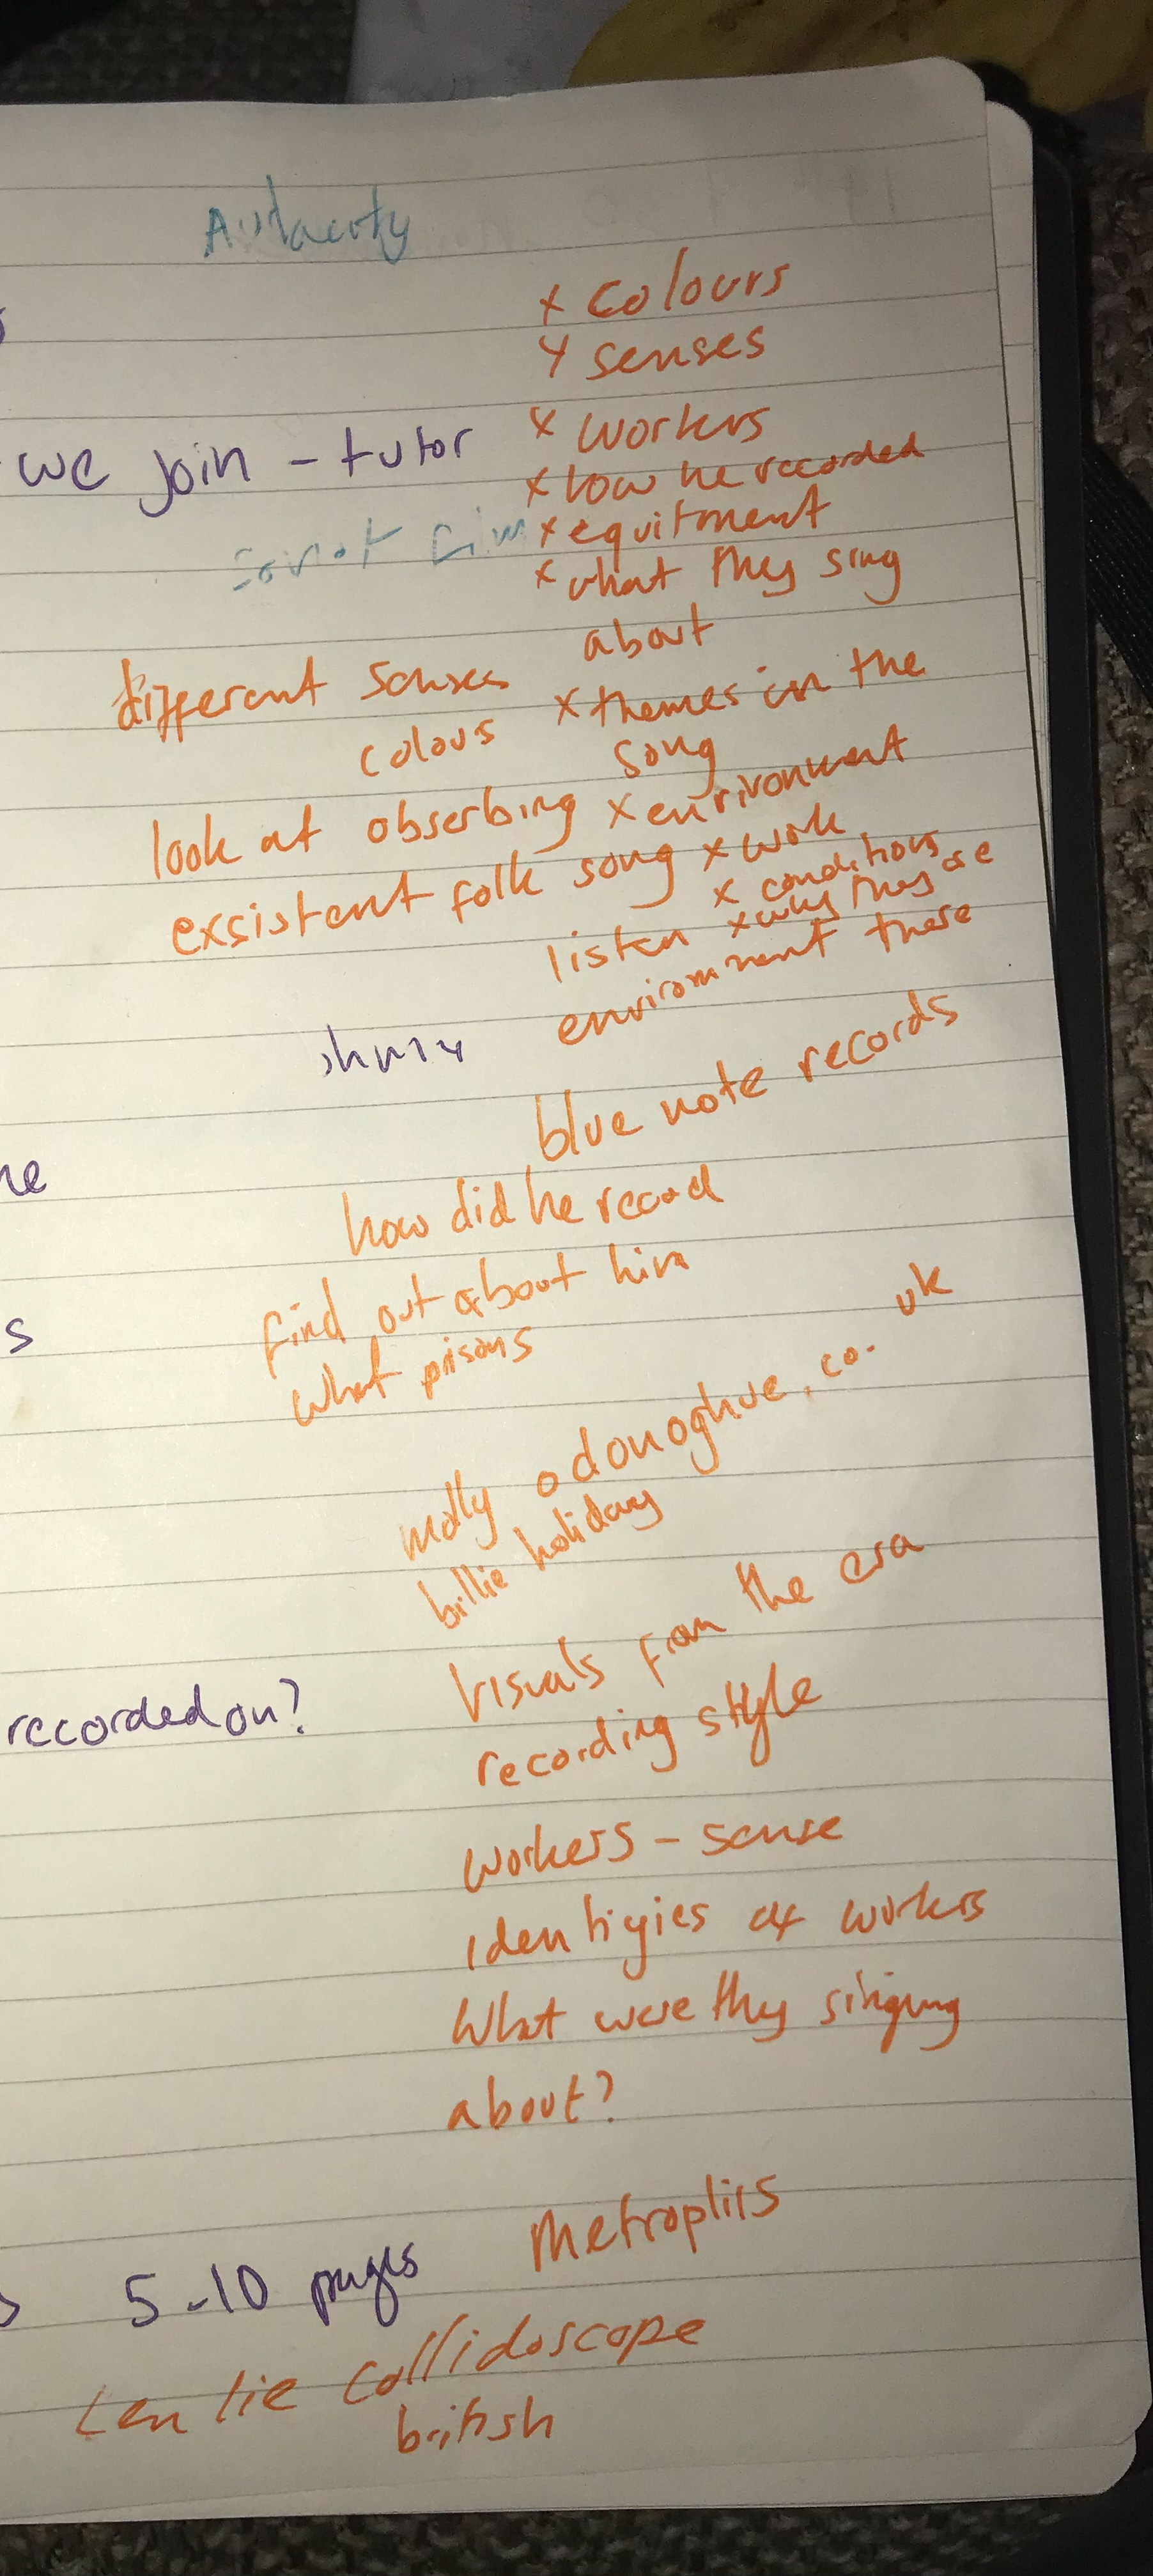 Audacity
x colours
x senses
we join - tutor
x workers
x how he recorded
x equitment
x what they sing
about
different senses
colous
x themes in the
song
look at obserbing
x enrivonment
exsistent folk song
x work
x conditions
x why they are
there
listen
environment
blue note records
ne
how did he record
find out about him
s
what prisons
molly odonoghue.co.uk
billie holiday
visuals from the era
recorded on?
recording style
workers - sense
identifyies of workers
What were they singing
about?
Metroplils
5-10 pages
Len lie collidoscope
british